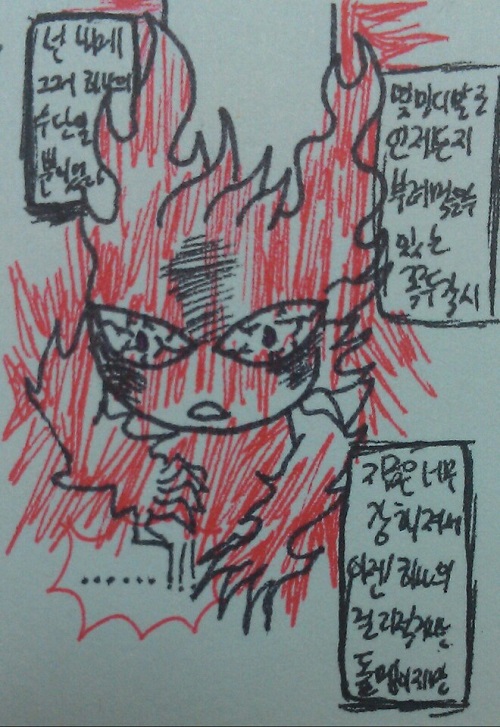 넌 내게
그저 하나의
수단일
뿐이었다
몇마디 말로
언제든지
부려먹을수
있는
꼭두각시
지금은 너무
강해져서
이젠 하나의
돌멩이지만
......